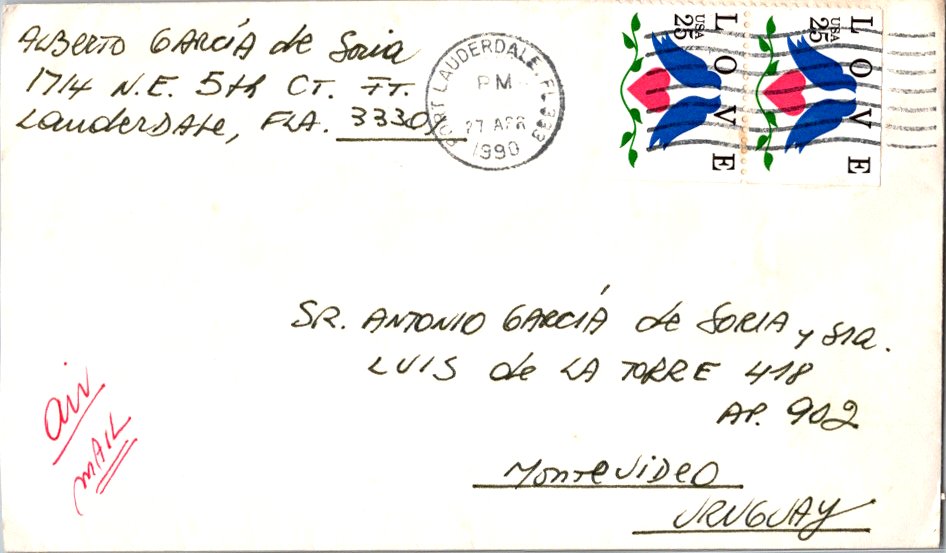 ALBERTO GARCÍA de Soria
1714 N.E. 5th CT. FT.
LauderDALe, FLA. 3330
FORT LAUDERDALE, FL 333
PM
27 APR
1990
LOVE
USA
25
LOVE
USA
25
SR. ANTONIO GARCÍA de SORIA y Sra.
LUIS de LA TORRE 418
AP. 902
MonteviDeo
URUGUAY
air
MAIL